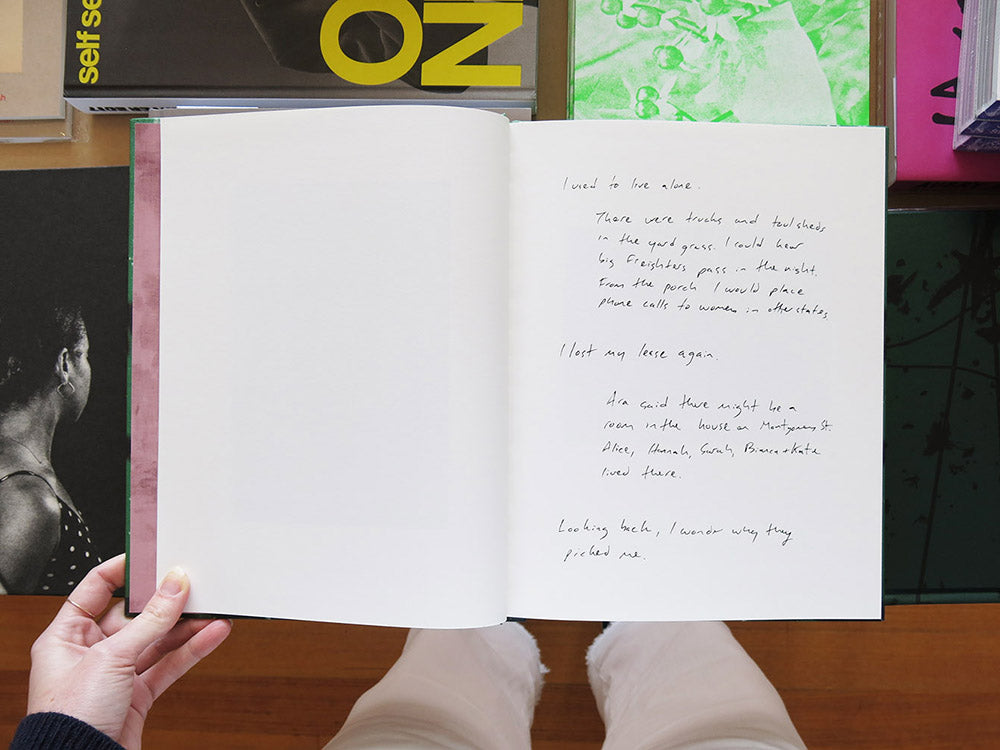 self se
ON
I used to live alone.
There were trucks and toolsheds
in the yard grass. I could hear
big Freighters pass in the night.
From the porch I would place
phone calls to women in other states,
I lost my lease again.
Ara said there might be a
room in the house on Montgomery St.
Alice, Hannah, Sarah, Bianca + Kate
lived there.
Looking back, I wonder why they
picked me.